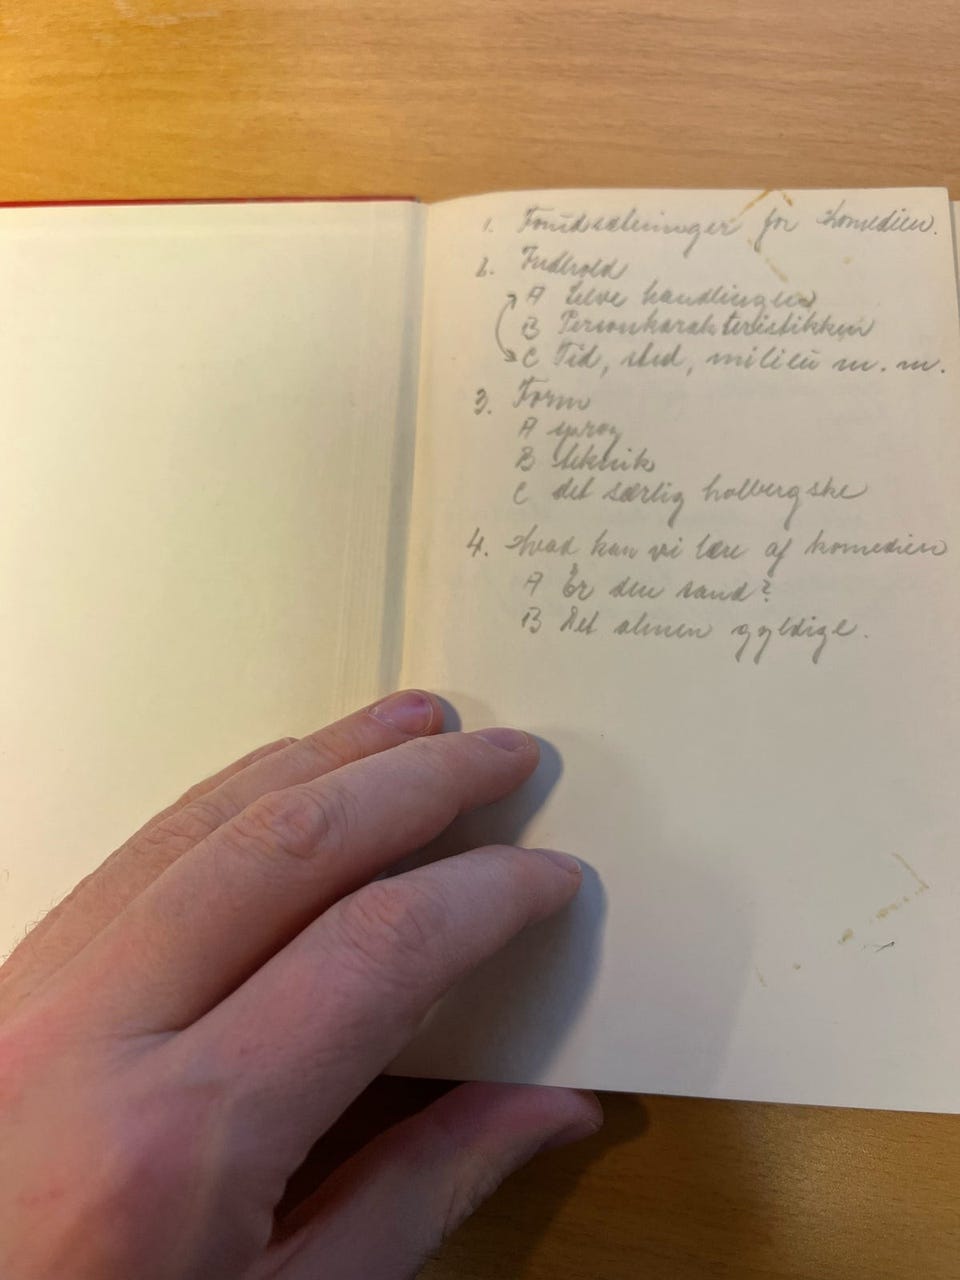 1. Forudsætninger for komedien.
2. Indhold
A Selve handlingen
B Personkarakteristikken
C Tid, sted, milieu m. m.
3. Form
A sprog
B teknik
C det særlig holbergske
4. Hvad kan vi lære af komedien
A Er den sand?
B Det almen gyldige.